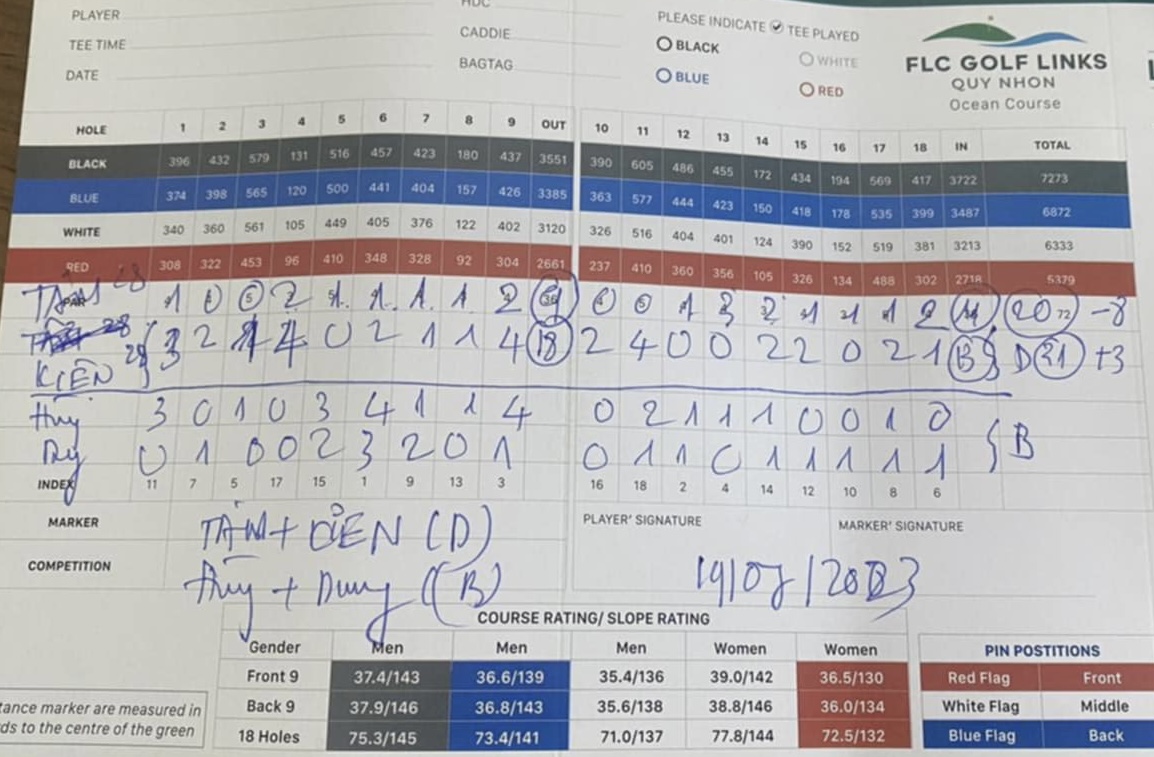 PLAYER
HDC
PLEASE INDICATE TEE PLAYED
TEE TIME
CADDIE
BLACK
WHITE
FLC GOLF LINKS
DATE
BAGTAG
BLUE
RED
QUY NHON
Ocean Course
HOLE 1 2 3 4 5 6 7 8 9 OUT 10 11 12 13 14 15 16 17 18 IN TOTAL
BLACK 396 432 579 131 516 457 423 180 437 3551 390 605 486 455 172 434 194 569 417 3722 7273
BLUE 374 398 565 120 500 441 404 157 426 3385 363 577 444 423 150 418 178 535 399 3487 6872
WHITE 340 360 561 105 449 405 376 122 402 3120 326 516 404 401 124 390 152 519 381 3213 6333
RED 308 322 453 96 410 348 328 92 304 2661 237 410 360 356 105 326 134 488 302 2718 5379
TÂM 28 1 0 2 1 1 1 1 2 0 0 1 3 2 1 1 1 2 20 72 -8
KIÊN 29 3 2 1 4 0 2 1 1 4 18 2 4 0 0 2 2 0 2 1 13 D 31 +3
Huy 3 0 1 0 3 4 1 1 4 0 2 1 1 1 0 0 1 0
Dg 0 1 0 0 2 3 2 0 1 0 1 1 0 1 1 1 1 1 B
INDEX 11 7 5 17 15 1 9 13 3 16 18 2 4 14 12 10 8 6
MARKER
TÂM + (D)
PLAYER' SIGNATURE
MARKER' SIGNATURE
COMPETITION
Huy + Dung (B)
COURSE RATING/ SLOPE RATING
Gender Men Men Men Women Women
Front 9 37.4/143 36.6/139 35.4/136 39.0/142 36.5/130
Back 9 37.9/146 36.8/143 35.6/138 38.8/146 36.0/134
18 Holes 75.3/145 73.4/141 71.0/137 77.8/144 72.5/132
PIN POSTITIONS
Red Flag Front
White Flag Middle
Blue Flag Back
tance marker are measured in
ds to the centre of the green